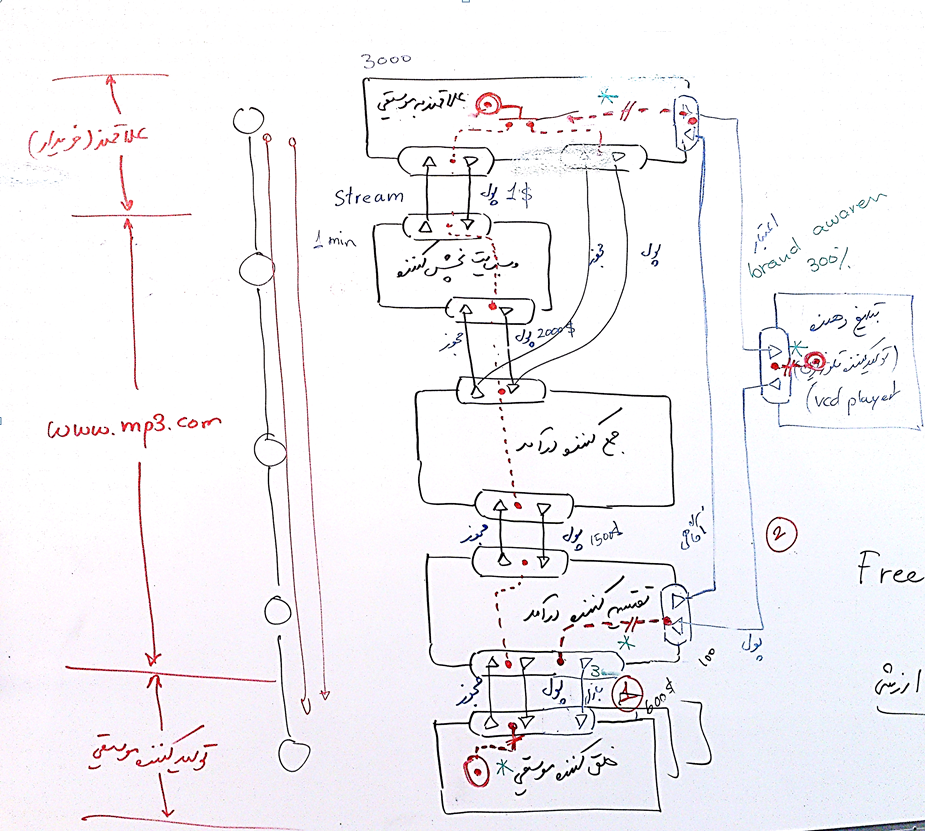 3000
علاقمند به موسیقی
علاقمند (خریدار)
Stream
پول 1$
1 min
وبسایت پخش کننده
مجوز
پول
اعتبار
brand awaren
300%
مجوز
پول 2000$
تبلیغ دهنده
(تولیدکننده تلویزیون)
(vcd player
www.mp3.com
جمع کننده درآمد
مجوز
پول 1500$
2
Free
تقسیم کننده درآمد
پول
100
مجوز
پول
بازار
3
1
600$
ارزش
تولید کننده موسیقی
خلق کننده موسیقی